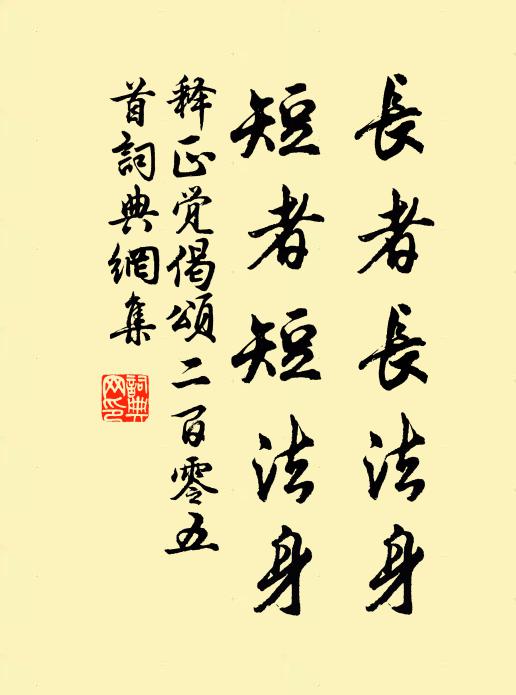 長者長法身
短者短法身
释正覚偈頌二百零五
首詞典網集
詞典網印